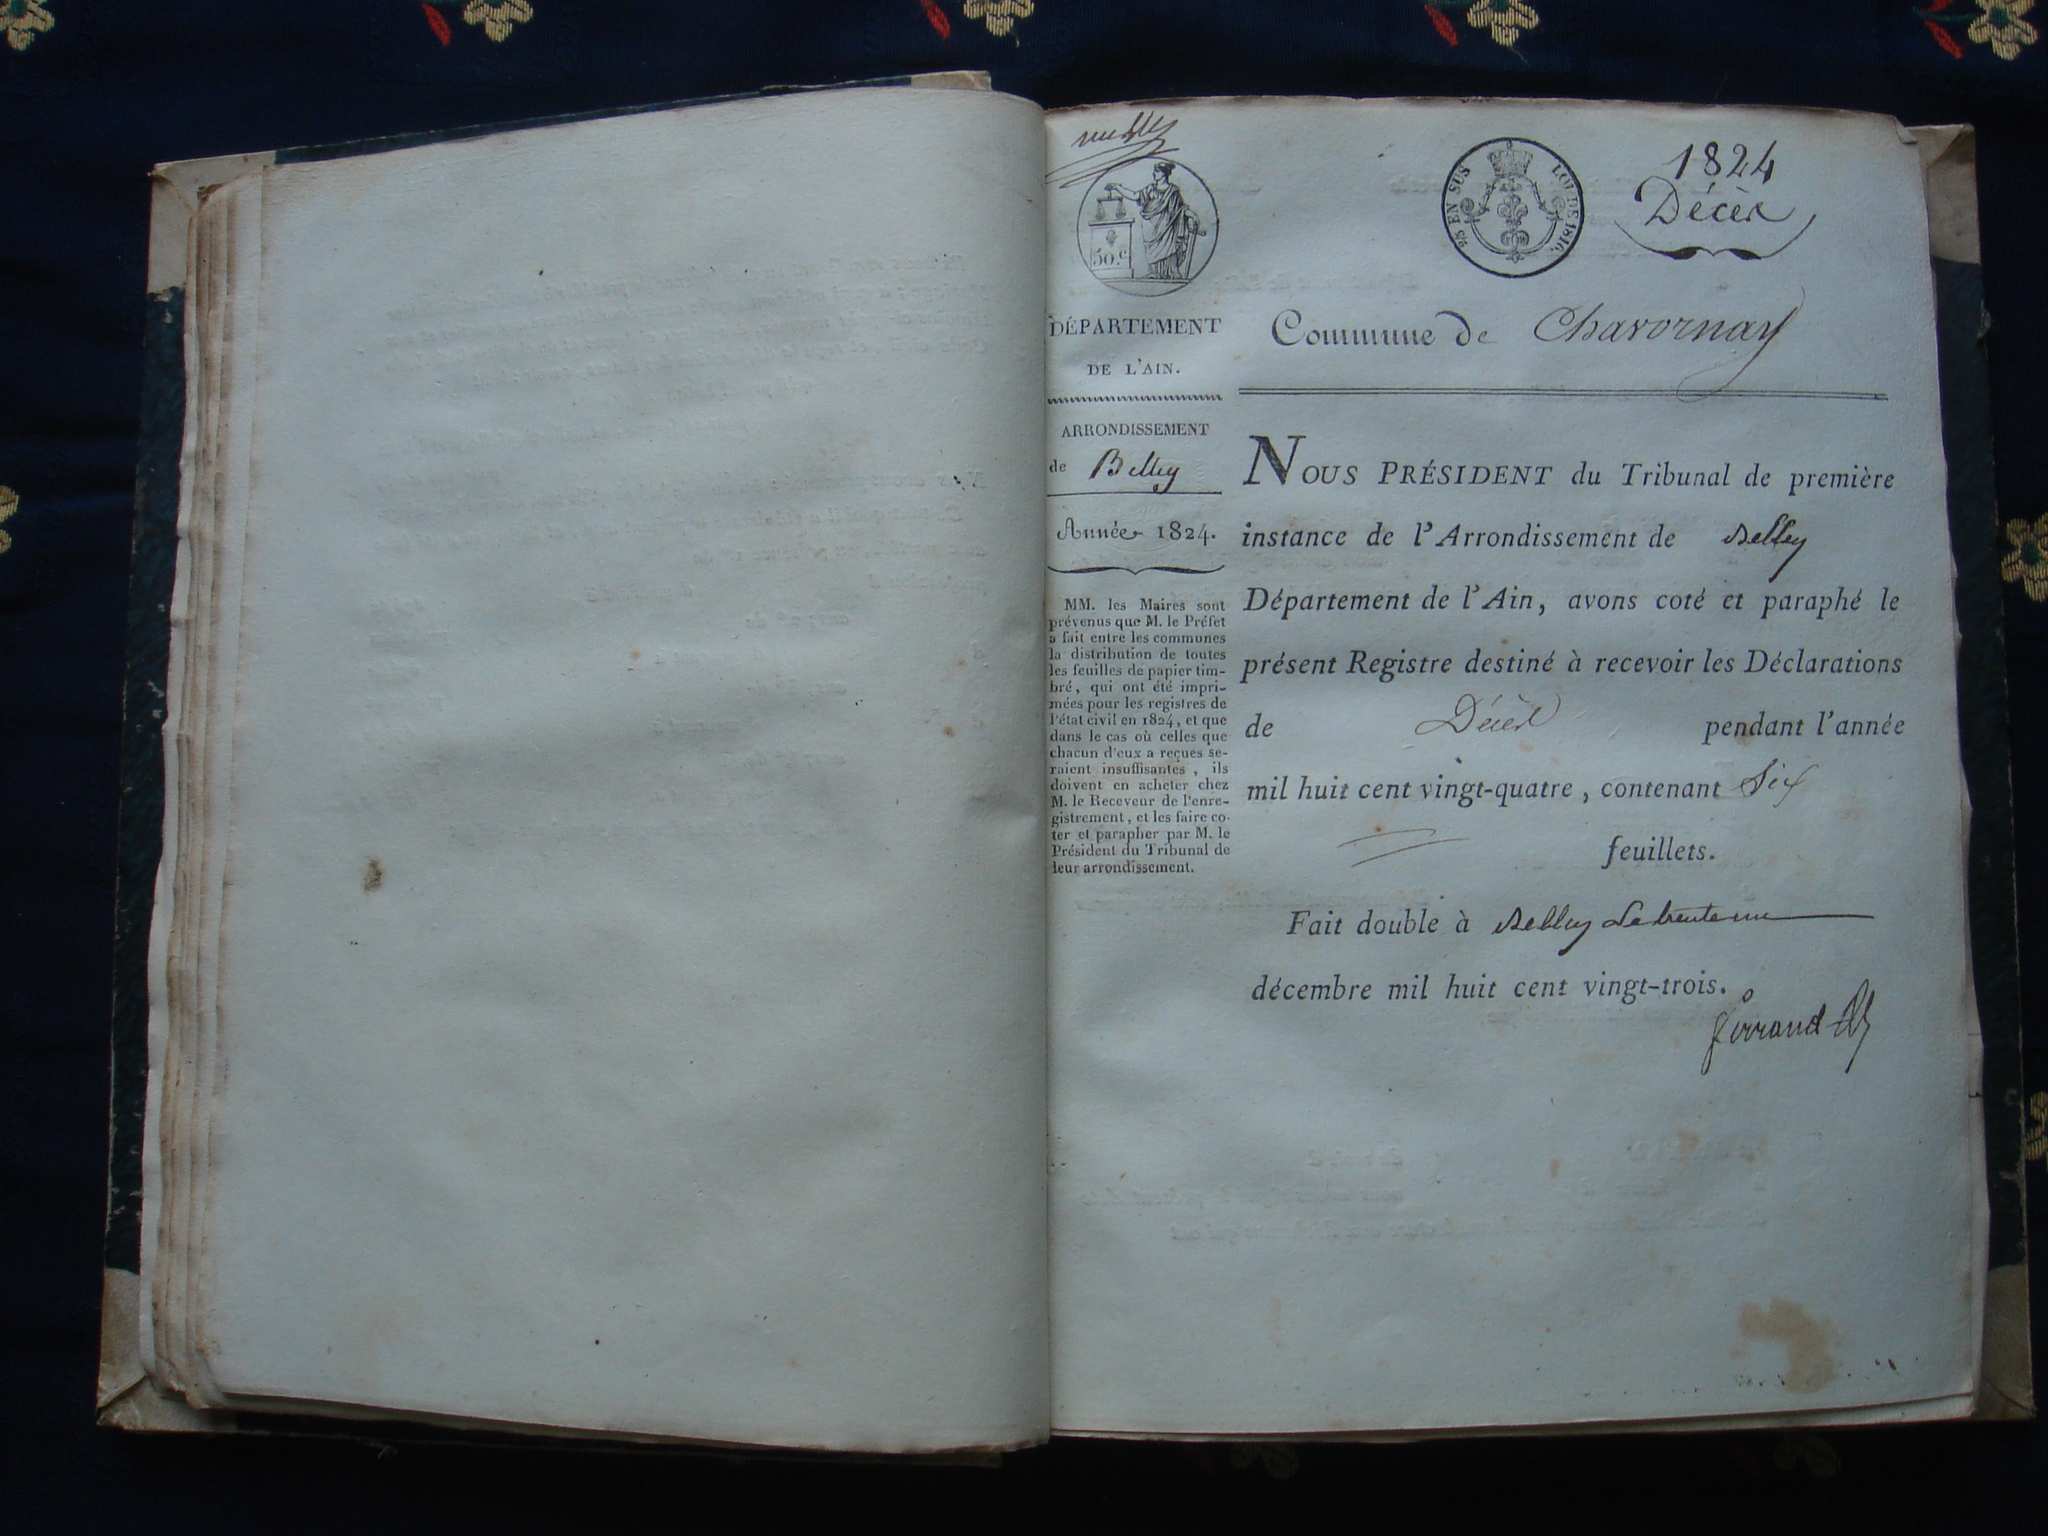 50.c
25 EN SUS
LOI DE 1816.
1824
Décès
DÉPARTEMENT
DE L'AIN.
ARRONDISSEMENT
de Belley
Année 1824.
MM. les Maires sont
prévenus que M. le Préfet
a fait entre les communes
la distribution de toutes
les feuilles de papier tim-
bré, qui ont été impri-
mées pour les registres de
l'état civil en 1824, et que
dans le cas où celles que
chacun d'eux a reçues se-
raient insuffisantes, ils
doivent en acheter chez
M. le Receveur de l'enre-
gistrement, et les faire co-
ter et parapher par M. le
Président du Tribunal de
leur arrondissement.
Commune de Chavornay
NOUS PRÉSIDENT du Tribunal de première
instance de l'Arrondissement de Belley
Département de l'Ain, avons coté et paraphé le
présent Registre destiné à recevoir les Déclarations
de Décès pendant l'année
mil huit cent vingt-quatre, contenant Six
feuillets.
Fait double à Belley Le trente un
décembre mil huit cent vingt-trois.